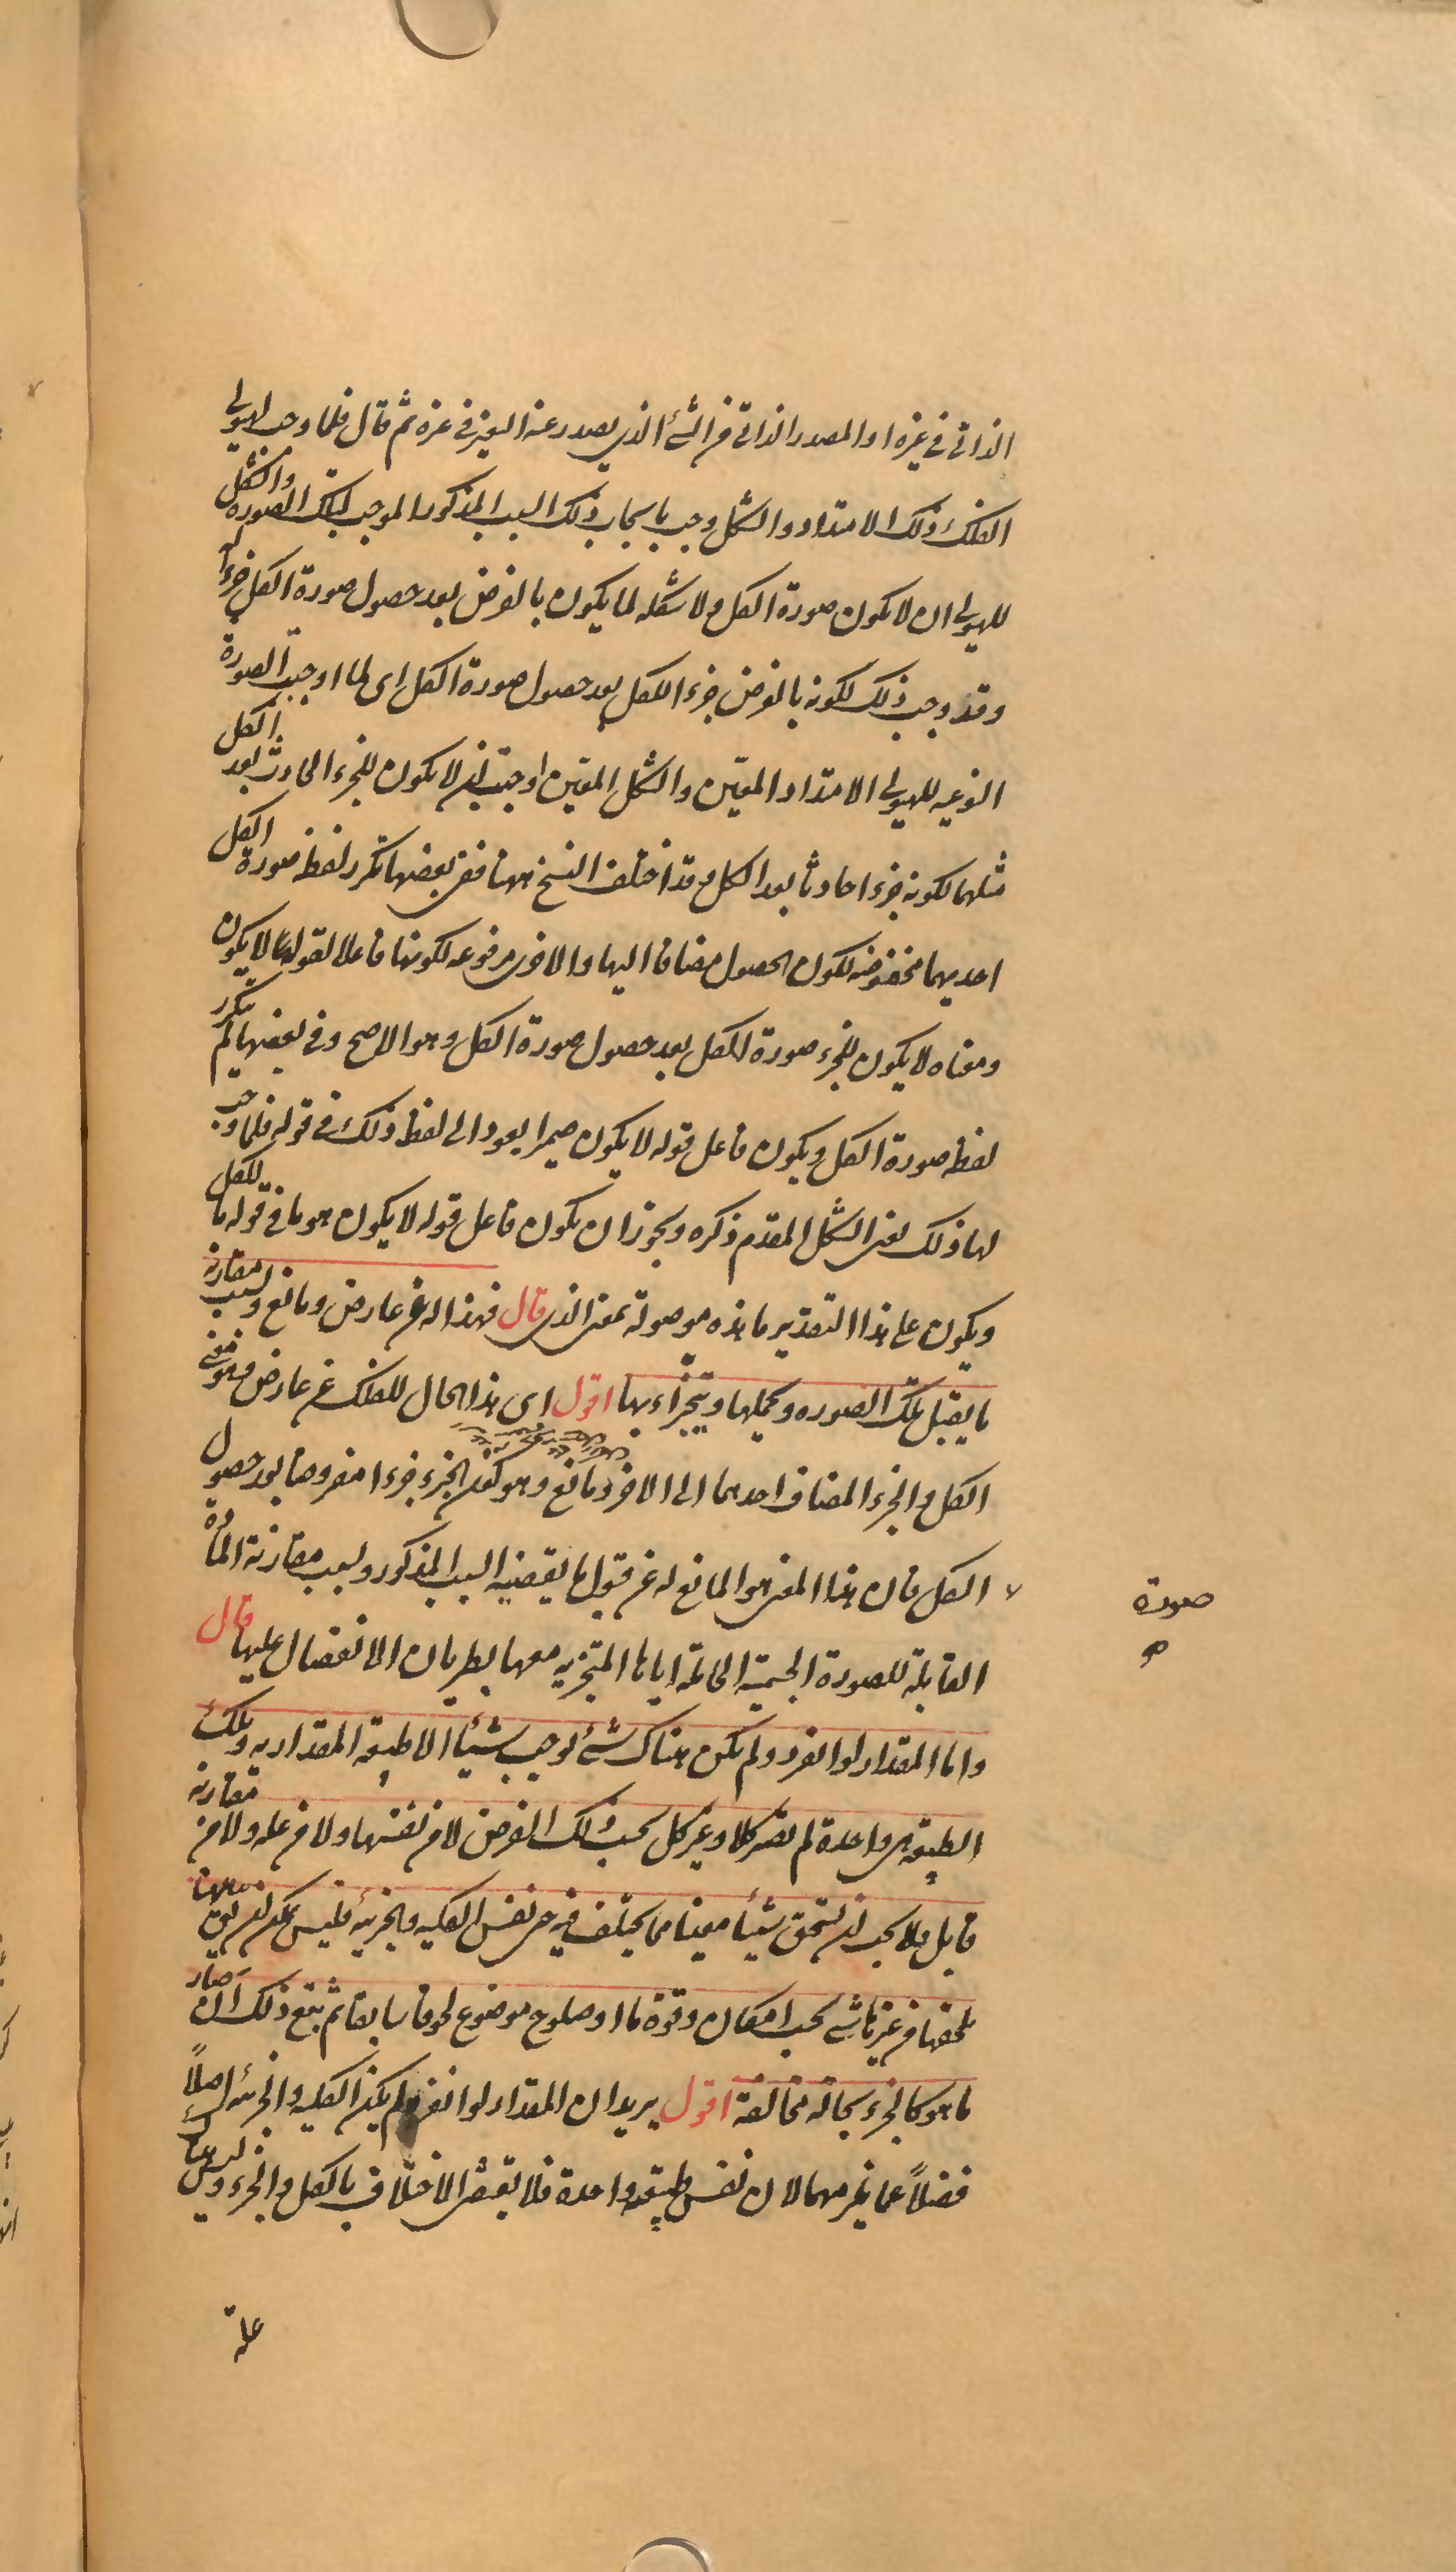 الذاتي في غيره او المصدر الذاتي من الشئ الذي يصدر عنه التغير في غيره ثم قال فلما وجب لهيولى
الفلك ذلك الامتداد والشكل وجب بايجاب ذلك السبب المذكور الموجب لتلك الصورة والشكل
للهيولى ان لا يكون صورة الكل ولا شكله لما يكون بالفرض بعد حصول صورة الكل جزءا له
وقد وجب ذلك لكونه بالفرض جزءا للكل بعد حصول صورة الكل اى لما اوجبت الصورة
النوعيه للهيولى الامتداد المعين والشكل المعين اوجبت ان لا يكون للجزء الحادث بعد الكل
مثلهما لكونه جزءا حادثا بعد الكل وقد اختلف النسخ ههنا ففى بعضها تكرر لفظ صورة الكل
احديهما مخفوضه لكون الحصول مضافا اليها والاخرى مرفوعه لكونها فاعلا لقوله لا يكون
ومعناه لا يكون للجزء صورة الكل بعد حصول صورة الكل وهو الاصح وفى بعضها لم يتكرر
لفظ صورة الكل ويكون فاعل قوله لا يكون ضميرا يعود الى لفظ ذلك فى قوله فلما وجب
لها ذلك يعنى الشكل المقدم ذكره ويجوز ان يكون فاعل قوله لا يكون هو ما فى قوله ما للكل
ويكون على هذا التقدير ما هذه موصولة بمعنى الذى قال فهذا له عن عارض ومانع ولسبب مقارنه
ما يقبل تلك الصوره ويحملها ويتجزاء بها اقول اى هذا الحال للفلك عن عارض وهو معنى
الكل والجزء المضاف احدهما الى الاخر ومانع وهو كون الجزء جزءا مفروضا بعد حصول
الكل فان هذا المعنى هو المانع له عن قبول ما يقتضيه السبب المذكور ولسبب مقارنة المادة
صورة
القابلة للصورة الجسمية الحاملة اياها المتجزيه معها بطريان الانفصال عليها قال
واما المقدار لو انفرد ولم يكن هناك شئ لوجب شيئا الا طبيعة المقداريه وتلك
الطبيعة هى واحدة لم تصر كلا وغير كل بحسب ذلك الفرض لا من نفسها ولا من علة ولا من مقارنه
قابل ولا يجب ان يستحق شيئا معينا مما يختلف فيه حتى نفس الكليه والجزئيه فليس يمكن ان يق ههنا
لحقها من غيرها شئ بحسب امكان وقوة ما او صلوح موضوع لحوقا سابقا ثم يتبع ذلك ان صار
ما هو كالجزء بحاله مخالفة اقول يريد ان المقدار لو انفرد لم يكن الكليه والجزئيه اصلاً
فضلاً عما يغيرهما لان نفس طبيعة واحدة فلا يقتضى الاختلاف بالكل والجزء وليس هناك
علة